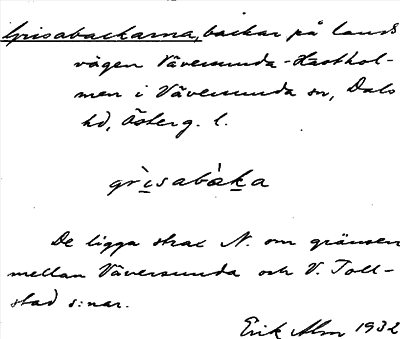 Grisabackarna, backar på lands
vägen Väversunda-Hästhol-
men i Väversunda sn, Dals
hd, Österg. l.
grìsabàka
De ligga strax N. om gränsen
mellan Väversunda och V. Toll-
stad s:nar.
Erik Alm 1932